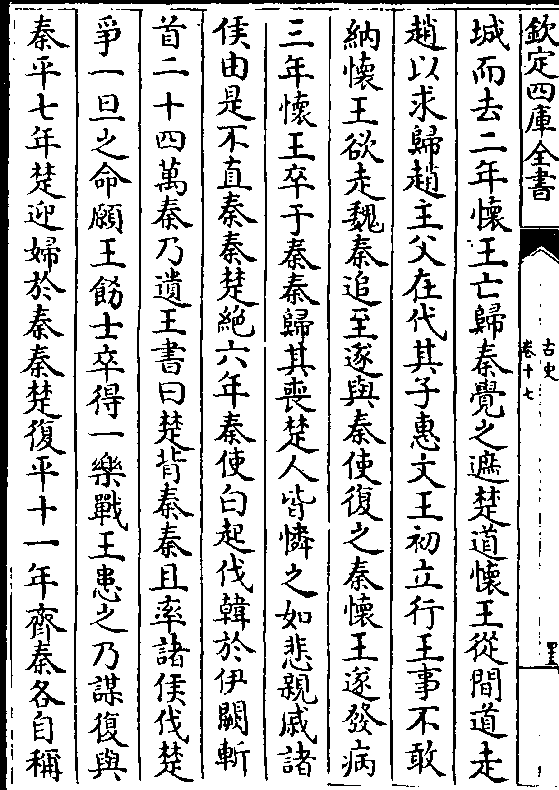 欽定四庫全書
古史
卷十七
城而去二年懷王亡歸秦覺之遮楚道懷王從間道走
趙以求歸趙主父在代其子惠文王初立行王事不敢
納懷王欲走魏秦追至遂與秦使復之秦懷王遂發病
三年懷王卒于秦秦歸其喪楚人皆憐之如悲親戚諸
侯由是不直秦秦楚絶六年秦使白起伐韓於伊闕斬
首二十四萬秦乃遺王書曰楚背秦秦且率諸侯伐楚
爭一旦之命願王飭士卒得一樂戰王患之乃謀復與
秦平七年楚迎婦於秦秦楚復平十一年齊秦各自稱